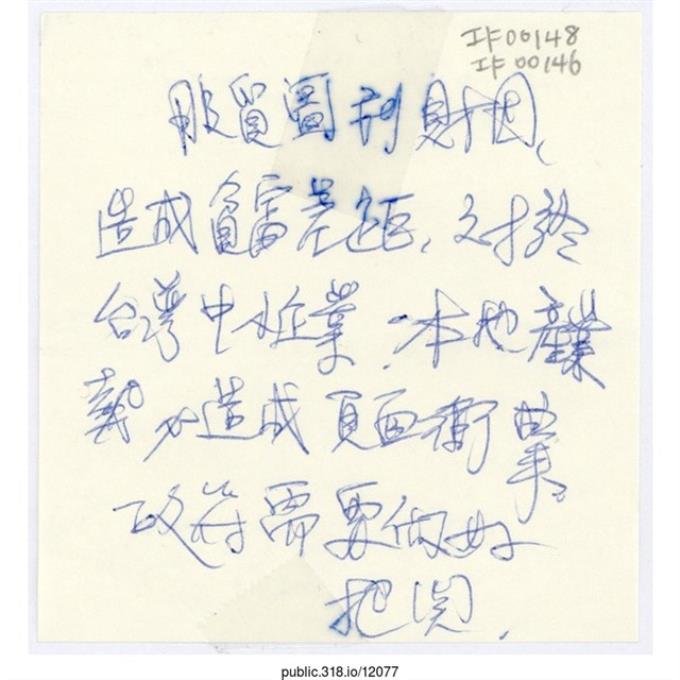 IF00148
IF00146
服貿圖利財団、
造成貧富差距，对於
台灣中小企業．本地產業
勢必造成負面衝擊。
政府需要做好
把関．
public.318.io/12077